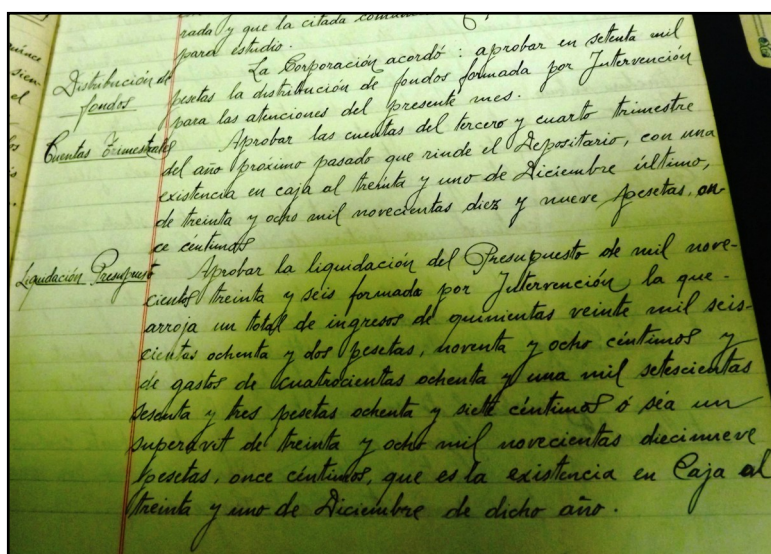 rada y que la citada
para estudio.
Distribución de
fondos
La Corporación acordó : aprobar en setenta mil
pesetas la distribución de fondos formada por Intervención
para las atenciones del presente mes.
Cuentas Trimestrales
Aprobar las cuentas del tercero y cuarto trimestre
del año próximo pasado que rinde el Depositario, con una
existencia en caja al treinta y uno de Diciembre último,
de treinta y ocho mil novecientas diez y nueve pesetas, on-
ce céntimos
Liquidación Presupuesto
Aprobar la liquidación del Presupuesto de mil nove-
cientos treinta y seis formada por Intervención la que -
arroja un total de ingresos de quinientas veinte mil seis-
cientas ochenta y dos pesetas, noventa y ocho céntimos y
de gastos de cuatrocientas ochenta y una mil setescientas
sesenta y tres pesetas ochenta y siete céntimos ó sea un
superavit de treinta y ocho mil novecientas diecinueve
pesetas, once céntimos, que es la existencia en Caja al
treinta y uno de Diciembre de dicho año.